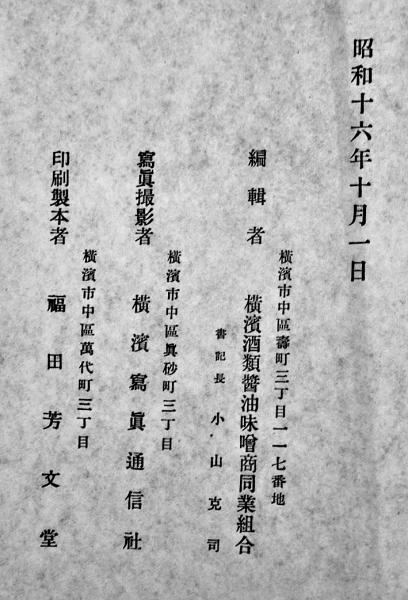 昭和十六年十月一日
橫濱市中區壽町三丁目一一七番地
編輯者 橫濱酒類醬油味噌商同業組合
書記長 小山克司
橫濱市中區眞砂町三丁目
寫眞撮影者 橫濱寫眞通信社
橫濱市中區萬代町三丁目
印刷製本者 福田芳文堂